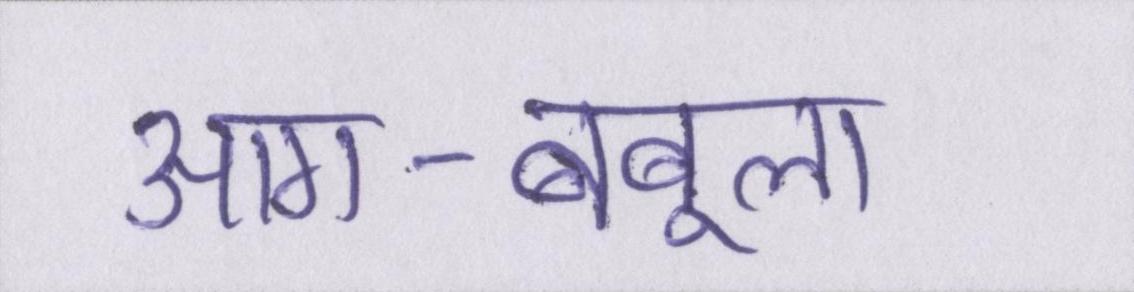 आग-बबूला